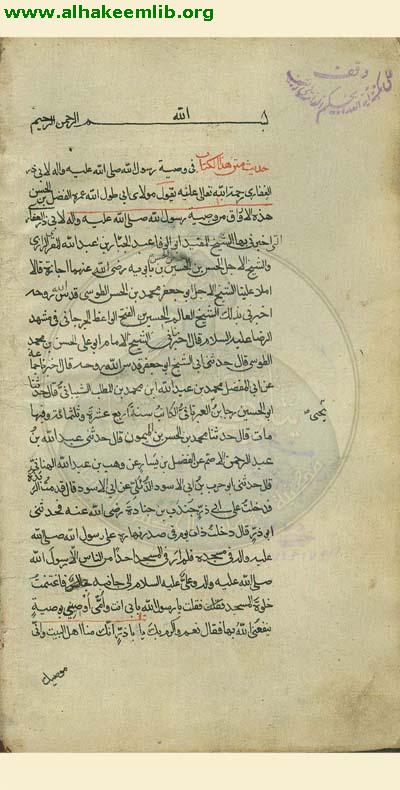 www.alhakeemlib.org
وقف
بسم الله الرحمن الرحيم
حديث متن هذا الكتاب في وصية رسول الله صلى الله عليه واله لابي ذر
الغفاري رحمة الله تعالى عليه يقول مولاى ابى طول الله عمره الفضل بن الحسن
هذه الاوراق من وصية رسول الله صلى الله عليه واله لابي ذر الغفاري
التي اخبرني بها الشيخ المفيد ابو الوفا عبد الجبار بن عبد الله المقرى الرازي
والشيخ الاجل الحسن بن الحسين بن بابويه رضى الله عنهما اجازة قالا
املا علينا الشيخ الاجل ابو جعفر محمد بن الحسن الطوسي قدس الله روحه
اخبرني بذلك الشيخ العالم الحسين بن الفتح الواعظ الجرجاني في مشهد
الرضا عليه السلام قال اخبرنا الشيخ الامام ابو على الحسن بن محمد
الطوسي قال حدثني ابى الشيخ ابو جعفر قدس الله روحه قال اخبرنا جماعة
عن ابى المفضل محمد بن عبد الله بن محمد بن المطلب الشيباني قال حدثنا
ابو الحسين رجا بن العبرتائي الكاتب سنة اربع عشرة وثلثمائة وفيها
يحيى
مات قال حدثنا محمد بن الحسن بن ميمون قال حدثني عبد الله بن
عبد الرحمن الاصم عن الفضيل بن يسار عن وهب بن عبد الله الهنائي
قال حدثني ابو حرب بن ابى الاسود الدئلي عن ابى الاسود قال قدمت الربذة
فدخلت على ابى ذر جندب بن جنادة رضى الله عنه فحدثني
ابو ذر قال دخلت ذات يوم في صدر نهاره على رسول الله صلى الله
عليه واله في مسجده فلم ار في المسجد احدا من الناس الا رسول الله
صلى الله عليه واله وعلى عليه السلام الى جانبه جالس فاغتنمت
خلوة المسجد فقلت يا رسول الله بابى انت وامى اوصنى بوصية
ينفعنى الله بها فقال نعم واكرم بك يا با ذر انك منا اهل البيت وانى
موصيك